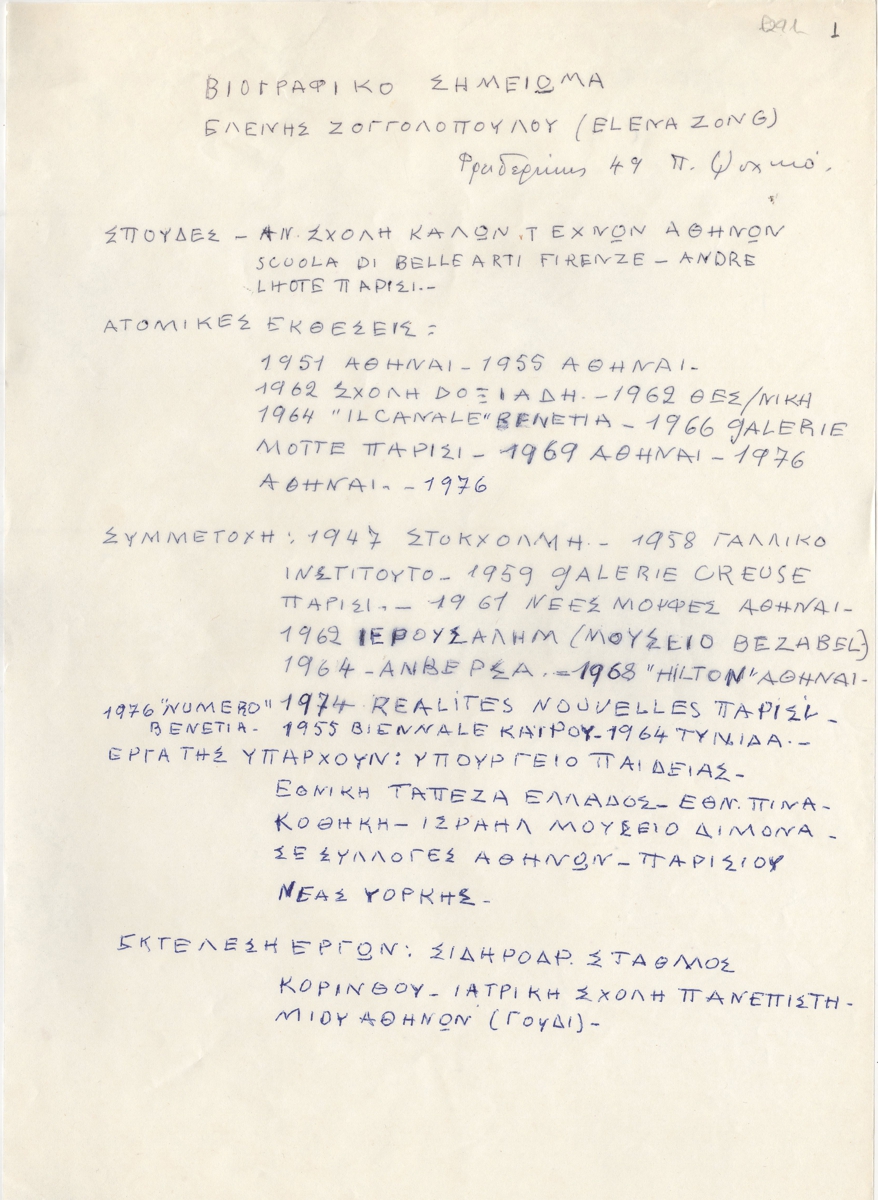 1
ΒΙΟΓΡΑΦΙΚΟ ΣΗΜΕΙΩΜΑ
ΕΛΕΝΗΣ ΖΟΓΓΟΛΟΠΟΥΛΟΥ (ELENA ZONG)
Φρειδερίκης 49 Π. Ψυχικό.
ΣΠΟΥΔΕΣ – ΑΝ. ΣΧΟΛΗ ΚΑΛΩΝ ΤΕΧΝΩΝ ΑΘΗΝΩΝ
SCUOLA DI BELLE ARTI FIRENZE – ANDRE
LHOTE ΠΑΡΙΣΙ.–
ΑΤΟΜΙΚΕΣ ΕΚΘΕΣΕΙΣ:
1951 ΑΘΗΝΑΙ – 1955 ΑΘΗΝΑΙ.–
1962 ΣΧΟΛΗ ΔΟΞΙΑΔΗ.–1962 ΘΕΣ/ΝΙΚΗ
1964 "IL CANALE" ΒΕΝΕΤΙΑ – 1966 GALERIE
MOTTE ΠΑΡΙΣΙ – 1969 ΑΘΗΝΑΙ – 1976
ΑΘΗΝΑΙ. – 1976
ΣΥΜΜΕΤΟΧΗ: 1947 ΣΤΟΚΧΟΛΜΗ.– 1958 ΓΑΛΛΙΚΟ
ΙΝΣΤΙΤΟΥΤΟ – 1959 GALERIE CREUSE
ΠΑΡΙΣΙ. – 1961 ΝΕΕΣ ΜΟΡΦΕΣ ΑΘΗΝΑΙ –
1962 ΙΕΡΟΥΣΑΛΗΜ (ΜΟΥΣΕΙΟ BEZABEL)
1964 – ΑΝΒΕΡΣΑ. – 1968 "HILTON" ΑΘΗΝΑΙ.
1976 "NUMERO" 1974 REALITES NOUVELLES ΠΑΡΙΣΙ. –
ΒΕΝΕΤΙΑ – 1955 BIENNALE ΚΑΙΡΟΥ – 1964 ΤΥΝΙΔΑ. –
ΕΡΓΑ ΤΗΣ ΥΠΑΡΧΟΥΝ: ΥΠΟΥΡΓΕΙΟ ΠΑΙΔΕΙΑΣ –
ΕΘΝΙΚΗ ΤΑΠΕΖΑ ΕΛΛΑΔΟΣ – ΕΘΝ. ΠΙΝΑ–
ΚΟΘΗΚΗ – ΙΣΡΑΗΛ ΜΟΥΣΕΙΟ ΔΙΜΟΝΑ –
ΣΕ ΣΥΛΛΟΓΕΣ ΑΘΗΝΩΝ – ΠΑΡΙΣΙΟΥ
ΝΕΑΣ ΥΟΡΚΗΣ –
ΕΚΤΕΛΕΣΗ ΕΡΓΩΝ: ΣΙΔΗΡΟΔΡ. ΣΤΑΘΜΟΣ
ΚΟΡΙΝΘΟΥ – ΙΑΤΡΙΚΗ ΣΧΟΛΗ ΠΑΝΕΠΙΣΤΗ–
ΜΙΟΥ ΑΘΗΝΩΝ (ΓΟΥΔΙ) –